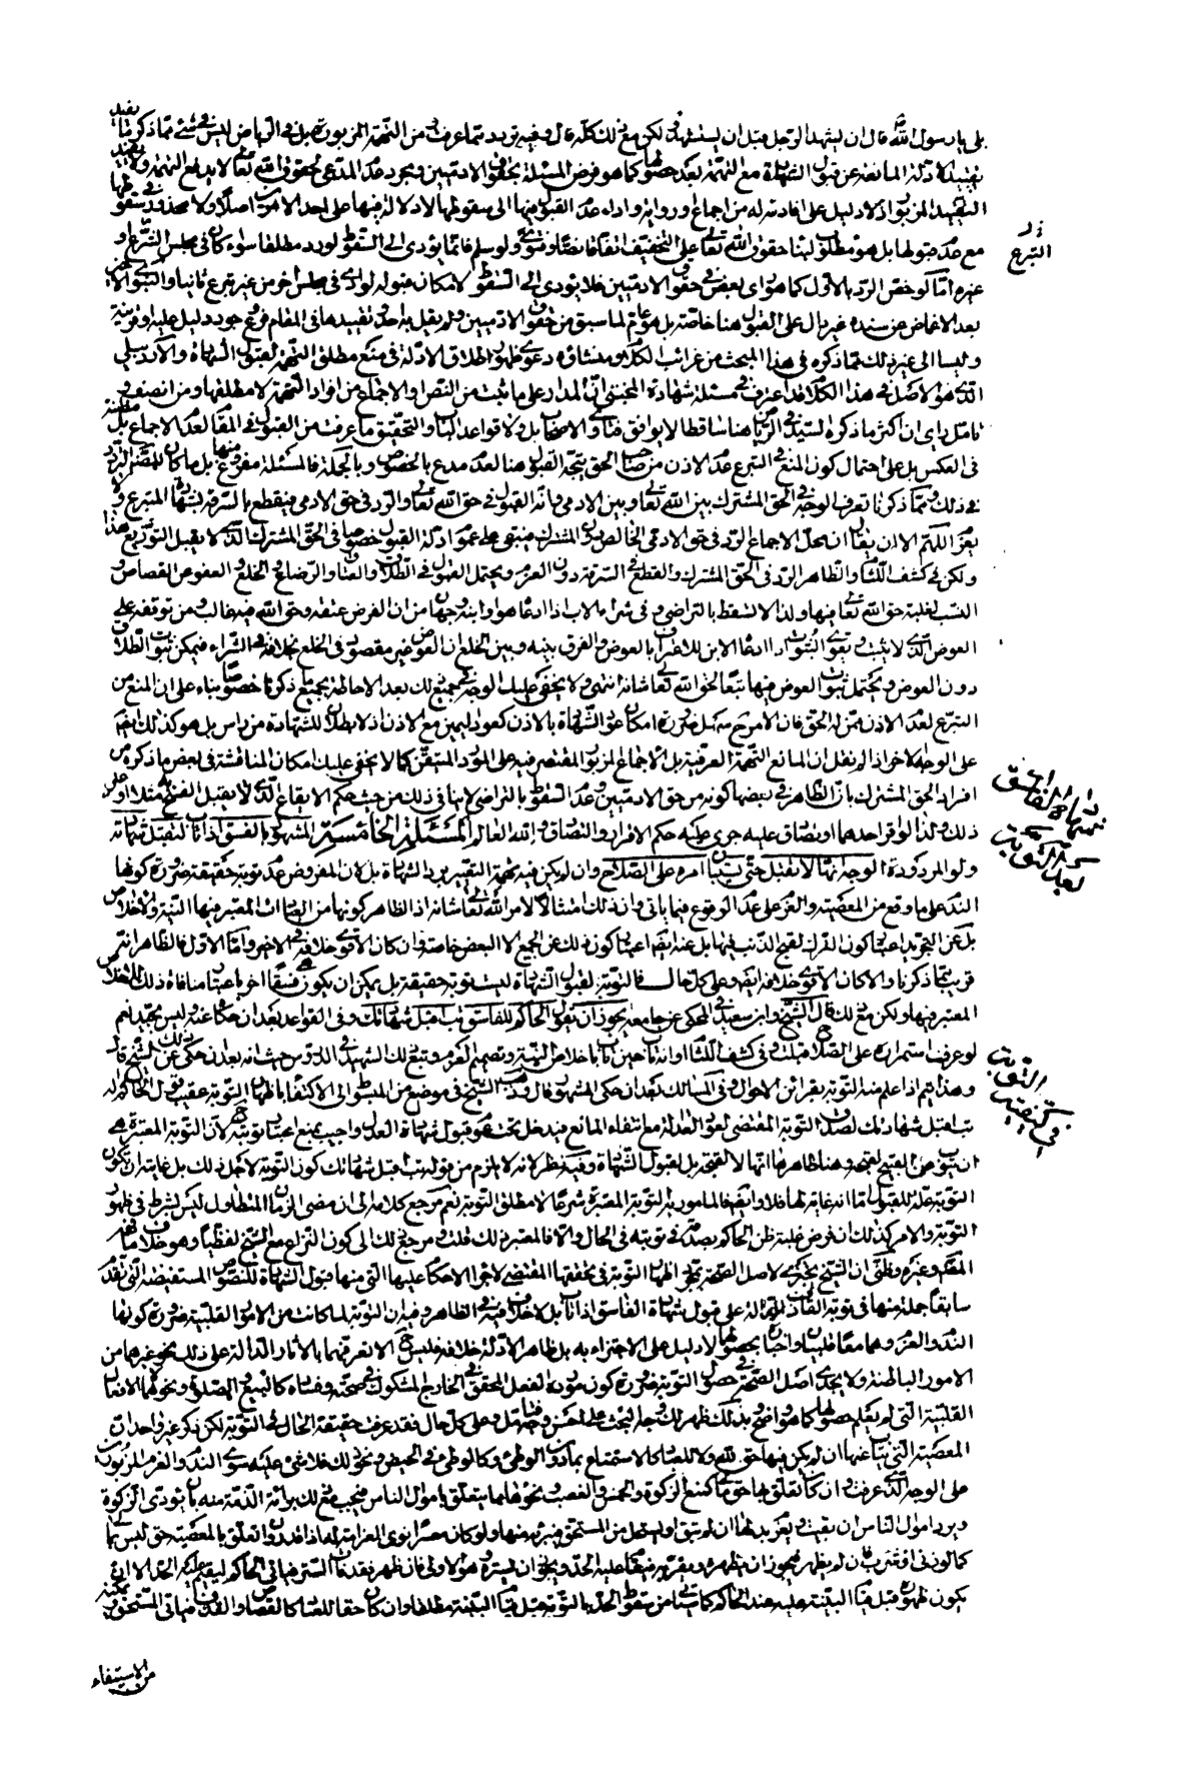 بلى يا رسول الله قال ان يشهد الرجل قبل ان يستشهد لكن مع ذلك كله قال وفيه تردد مما عرفت من التهمة المزبورة بل في الرياض ليس في شئ مما ذكر ما يفيد
تقييد الادلة المانعة عن قبول الشهادة مع التهمة بعد حصولها كما هو فرض المسئلة بحقوق الادميين ومجرد عدم المدعى لحقوق الله تعالى لا يدفع التهمة ولا يفيد
التقييد المزبور اذ لا دليل على افادته له من اجماع او رواية واداء عدم القبول فيها الى سقوطها لا دلالة فيها على احد الامرين اصلا ولا محذور في سقوطها
مع عدم قبولها بل هو مطلوب لبناء حقوق الله تعالى على التخفيف اتفاقا نصا وفتوى ولو سلم فانما يؤدى الى السقوط لو رد مطلقا سواء كان في مجلس التبرع او
غيره اما لو خص الرد بالاول كما هو راى بعض في حقوق الادميين فلا يؤدى الى السقوط لامكان قبوله لو ادى في مجلس اخر من غير تبرع ثانيا والنبوى الاخير
بعد الاغماض عن سنده غير دال على القبول هنا خاصة بل هو عام لما سبق من حقوق الادميين ولم يقل به احد وتقييدها في المقام فرع وجود دليل عليه او قرينة
وليسا الى غير ذلك مما ذكره في هذا المبحث من غرائب الكلام ومنشاؤه دعوى ظهور اطلاق الادلة في منع مطلق التهمة لقبول الشهادة والاردبيلى
الذى هو الاصل في هذا الكلام قد اعترف في مسئلة شهادة المختبى ان المدار على ما ثبت من النص او الاجماع من افراد التهمة لا مطلقها ومن انصف و
تامل راى ان اكثر ما ذكره السيد في الرياض هنا ساقط لا يوافق فتاوى الاصحاب ولا قواعد الباب والتحقيق ما عرفت من القبول في المقام لعدم الاجماع بل مظنة
في العكس بل على احتمال كون المنع في التبرع عدم الاذن من صاحب الحق يتجه القبول هنا لعدم مدع بالخصوص وبالجملة فالمسئلة مفروغ منها بل ما كان للمصنف التردد
في ذلك ومما ذكرنا تعرف الوجه في الحق المشترك بين الله تعالى وبين الادمى فانه القبول في حق الله تعالى والرد في حق الادمى فيقطع بالسرقة بشهادة المتبرع ولا
يغرم اللهم الا ان يقال ان محل الاجماع الرد في حق الادمى الخالص دون المشترك فيبقى على عموم ادلة القبول خصوصا في الحق المشترك الذى لا يقبل التوزيع هذا
ولكن في كشف اللثام والظاهر الرد في الحق المشترك والقطع في السرقة دون الغرم ويحتمل القبول في الطلاق والعتاق والرضاع والخلع والعفو عن القصاص و
النسب لغلبة حق الله تعالى فيها ولذا لا تسقط بالتراضى وفي شراء الاب اذا ادعاه هو او ابنه وجهان من ان الغرض عتقه وحق الله فيه غالب ومن توقفه على
العوض الذى لا يثبت ويقوى الثبوت اذا ادعاه الابن للاعتراف بالعوض والفرق بينه وبين الخلع ان العوض غير مقصود في الخلع بخلافه في الشراء فيمكن ثبوت الطلاق
دون العوض ويحتمل ثبوت العوض فيها تبعا لحق الله تعالى شانه انتهى ولا يخفى عليك الوجه في جميع ذلك بعد الاحاطة بجميع ما ذكرنا خصوصا بناء على ان المنع من
التبرع لعدم الاذن ممن له الحق فان الامر فيه سهل ضرورة امكان عود الشهادة بالاذن كعود اليمين مع الاذن اذ لا بطلان للشهادة من راس بل هو كذلك ايضا
على الوجه الاخر اذا لم نقل ان المانع التهمة العرفية بل الاجماع المزبور المقتصر فيه على المورد المتيقن كما لا يخفى عليك امكان المناقشة في بعض ما ذكره من
افراد الحق المشترك بان الظاهر في بعضها كونه من حق الادميين وعدم السقوط بالتراضى لانها في ذلك من حيث حكم الايقاع الذى لا يقبل الفسخ مثلا او غير
ذلك ولذا لو اقر احدهما او تصادقا عليه جرى عليه حكم الاقرار والتصادق والله العالم المسئلة الخامسة المشهور بالفسق اذا تاب لتقبل شهادته
ولو المردودة الوجه انها لا تقبل حتى يستبان امره على الصلاح وان لم يكن فيه تهمة التغيير برد الشهادة بل لان المفروض عدم توبته حقيقة ضرورة كونها
الندم على ما وقع من المعصية والعزم على عدم الوقوع فيما ياتى وان ذلك امتثالا لامر الله تعالى شانه اذ الظاهر كونها من العبادات المعتبر فيها النية والاخلاص
بل عن التجريد اعتبار كون الترك لقبح الذنب فيها بل عنه ايضا اعتبار كون ذلك عن الجميع لا البعض خاصة وان كان الاقوى خلافه في الاخير واما الاول فالظاهر انه
قريب مما ذكرنا والا كان الاقوى خلافه ايضا وعلى كل حال فالتوبة لقبول الشهادة ليست توبة حقيقة بل يمكن ان يكون فسقا اخر باعتبار منافاة ذلك للاخلاص
المعتبر فيها ولكن مع ذلك قال الشيخ وابن سعيد في المحكى عن جامعه يجوز ان يقول الحاكم للفاسق تب اقبل شهادتك وفي القواعد بعد ان حكاه عنه وليس بجيد نعم
لو عرف استمراره على الصلاح قبلت وفي كشف اللثام او انه تاب حين تاب باخلاص النية وتصميم العزم وتبع ذلك الشهيد في الدروس حيث انه بعد ان حكى ذلك عن الشيخ قال
وهذا يتم اذا علم منه التوبة بقرائن الاحوال وفي المسالك بعد ان حكى المشهور قال وذهب الشيخ في موضع من المبسوط الى الاكتفاء باظهار التوبة عقيب قول الحاكم له
تب اقبل شهادتك لصدق التوبة المقتضى لعود العدالة مع انتفاء المانع فيدخل تحت عموم قبول شهادة العدل واجيب بمنع اعتبار توبته ح لان التوبة المعتبرة هى
ان يتوب عن القبيح لقبحه وهنا ظاهرها انها لا لقبحه بل لقبول الشهادة وفيه نظر لانه لا يلزم من قوله تب اقبل شهادتك كون التوبة لاجل ذلك بل غايته ان يكون
التوبة علة للقبول اما انه غاية لها فلا وايضا فالمامور به التوبة المعتبرة شرعا لا مطلق التوبة نعم مرجع كلامه الى ان مضى الزمان المتطاول ليس بشرط في ظهور
التوبة والامر كذلك ان فرض غلبة ظن الحاكم بصدقه في توبته في الحال والا فالمعتبر ذلك قلت ومرجع ذلك الى كون النزاع مع الشيخ لفظيا وهو خلاف ما فهمه
المصنف وغيره وظنى ان الشيخ يجتزى لاصل الصحة بمجرد اظهار التوبة في تحققها المقتضى لاجراء الاحكام عليها التى منها قبول الشهادة للنصوص المستفيضة التى تقدم
سابقا جملة منها في توبة القاذف الدالة على قبول شهادة الفاسق اذا تاب بل لا خلاف فيه في الظاهر وفيه ان التوبة لما كانت من الامور القلبية ضرورة كونها
الندم والعزم وهما معا قلبيان واخباره بحصولها لا دليل على الاجتزاء به بل ظاهر الادلة خلافه فليس ح الا تعرفهما بالاثار الدالة على ذلك نحو غيرهما من
الامور الباطنة ولا يجدى اصل الصحة في حصول التوبة ضرورة كون مورده الفعل المحقق في الخارج المشكوك في صحته وفساده كالبيع والصلوة ونحوهما لا الافعال
القلبية التى لم يعلم حصولها كما هو واضح وبذلك ظهر لك وجه البحث على احسن وجه فتامل وعلى كل حال فقد عرفت حقيقة الحال في التوبة لكن ذكر غير واحد ان
المعصية التى يتاب عنها ان لم يكن فيها حق لله ولا للعباد كالاستمتاع بما دون الوطى وكالوطى في الحيض ونحو ذلك فلا شئ عليه سوى الندم والعزم المزبورين
على الوجه الذى عرفت وان كان تعلق بها حق مالى كمنع الزكوة والخمس والغصب ونحوها مما يتعلق باموال الناس فيجب مع ذلك براءة الذمة منه بان يؤدى الزكوة
ويرد اموال الناس ان بقيت ويغرم بدلها ان لم تبق او يستحل من المستحق فيبرئه منها ولو كان معسرا نوى الغرامة له اذا قدر وان تعلق بالمعصية حق ليس بمالى
كما لو زنى او شرب فان لم يظهر فيجوز ان يظهره ويقر به فيقام عليه الحد ويجوز ان يستره وهو الاولى فان ظهر فقد فات الستر فياتى الحاكم ليقيم عليه الحد الا ان
يكون ظهوره قبل قيام البينة عليه عند الحاكم كما سياتى من سقوط الحد بالتوبة قبل قيام البينة مطلقا وان كان حقا للعباد كالقصاص والقذف فياتى المستحق ويمكنه
من الاستيفاء
التبرع
شهادة الفاسق
بعد التوبة
في كيفية
التوبة